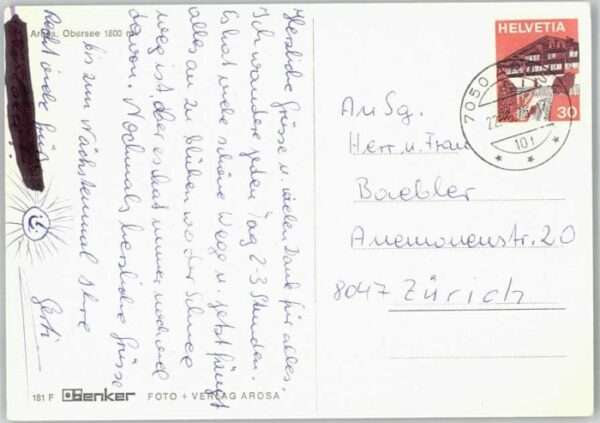 Arosa, Obersee 1800
Herzliche Grüsse u. vielen Dank für alles.
Ich wandere jeden Tag 2-3 Stunden.
Es hat viele schöne Wege u. jetzt fängt
alles an zu blühen wo der Schnee
weg ist, aber es hat immer noch viel
davon. Nochmals herzliche Grüsse
bis zum Nächstenmal Ihre
Gerti
Recht viele
HELVETIA
30
7050
22.
101
An Sg.
Herr u. Frau
Baebler
Anemonenstr. 20
8047 Zürich
181 F Denker FOTO + VERLAG AROSA